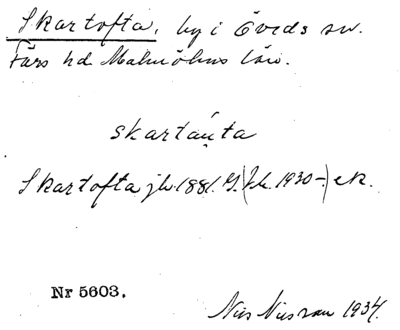 Skartofta, by i Öveds sn.
Färs hd. Malmöhus län.
skartåuta
Skartofta jh. 1881. G. (Jh. 1930-) ek.
Nr 5603.
Nils Nilsson 1934.